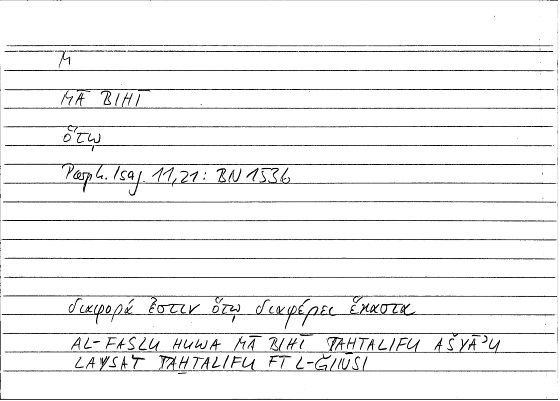 M
MĀ BIHĪ
ὅτῳ
Porph. Isag. 11,21: BN 1536
διαφορά ἐστιν ὅτῳ διαφέρει ἕκαστα
AL-FAṢLU HUWA MĀ BIHĪ TAḪTALIFU AŠYĀʾU
LAYSAT TAḪTALIFU FĪ L-ǦINSI